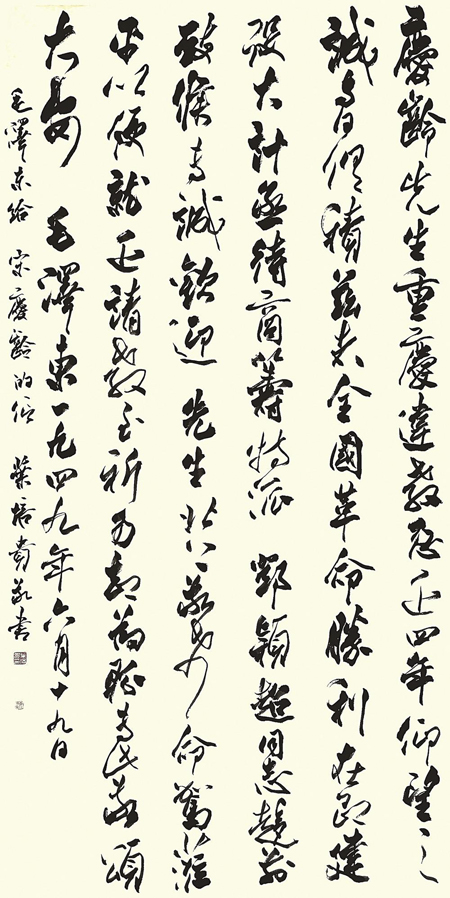 慶齡先生重慶違教忽近四年仰望之
誠与日俱積茲者全國革命勝利在即建
設大計亟待商籌特派 鄧穎超同志趨前
致候專誠歡迎 先生北上敬希 命駕蒞
平以便就近請教至祈勿却為盼專此敬頌
大安 毛澤東一九四九年六月十九日
毛澤东给 宋慶齡的信 葉培貴敬書